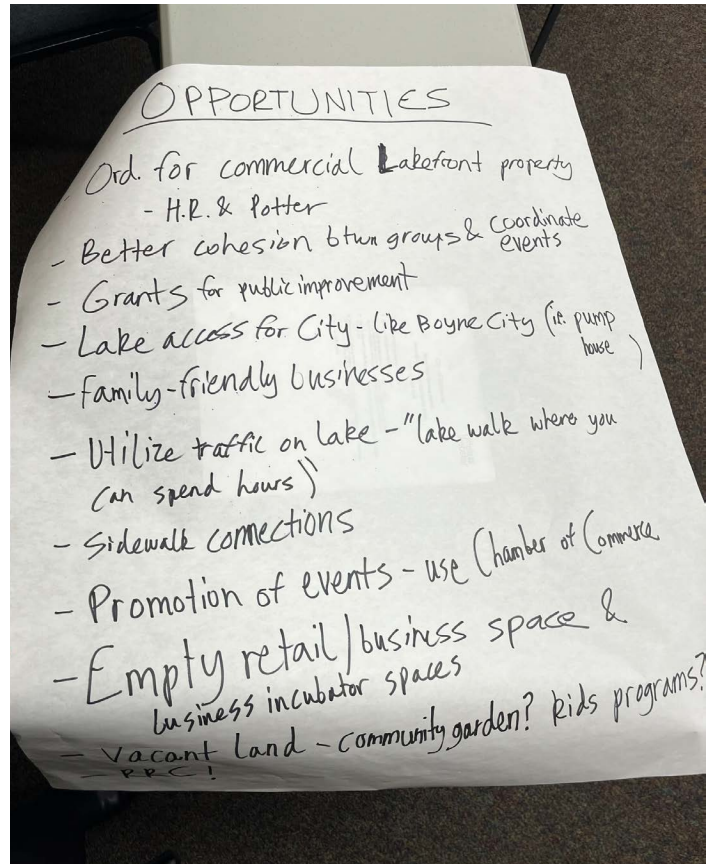 OPPORTUNITIES
Ord. for commercial Lakefront property
- H.R. & Potter
- Better cohesion btwn groups & coordinate events
- Grants for public improvement
- Lake access for City - like Boyne City (i.e. pump house)
- Family-friendly businesses
- Utilize traffic on lake - "lake walk where you
can spend hours"
- Sidewalk connections
- Promotion of events - use Chamber of Commerce
- Empty retail/business space &
business incubator spaces
- Vacant land - community garden? kids programs?
- RRC!